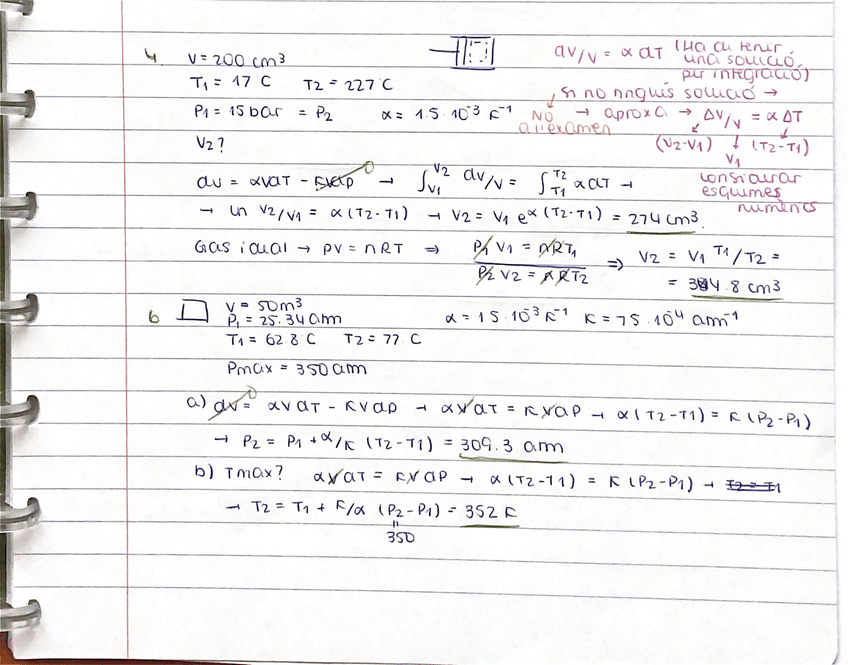 4. V = 200 cm³
dV/V = α dT (Ha de tenir una solució per integració)
T1 = 17 C T2 = 227 C
si no tingués solució →
P1 = 15 bar = P2 α = 1.5 · 10⁻³ K⁻¹
NO a l'examen → aproxa → ΔV/V = α ΔT
(V2-V1) V1 (T2-T1)
V2?
considerar esquemes numèrics
dV = αVdT - KVdP 0 → ∫V1 V2 dV/V = ∫T1 T2 α dT →
→ ln V2/V1 = α (T2-T1) → V2 = V1 e^α(T2-T1) = 274 cm³.
Gas ideal → PV = nRT ⇒ P1 V1 = nRT1 / P2 V2 = nRT2 ⇒ V2 = V1 T1/T2 =
= 344.8 cm³
6 V = 50 m³
P1 = 25.34 atm α = 1.5 · 10⁻³ K⁻¹ K = 7.5 · 10⁻⁴ atm⁻¹
T1 = 62.8 C T2 = 77 C
Pmax = 350 atm
a) dV = 0 αVdT - KVdP → αVdT = KVdP → α (T2-T1) = K (P2-P1)
→ P2 = P1 + α/K (T2-T1) = 309.3 atm
b) Tmax? αVdT = KVdP → α (T2-T1) = K (P2-P1) → T2 = T1
→ T2 = T1 + K/α (P2-P1) = 352 K
350